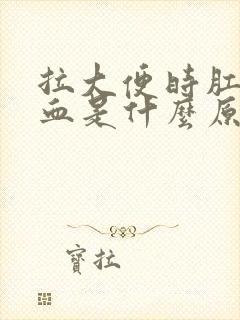 拉大便時肛
血是什麼原
寶拉